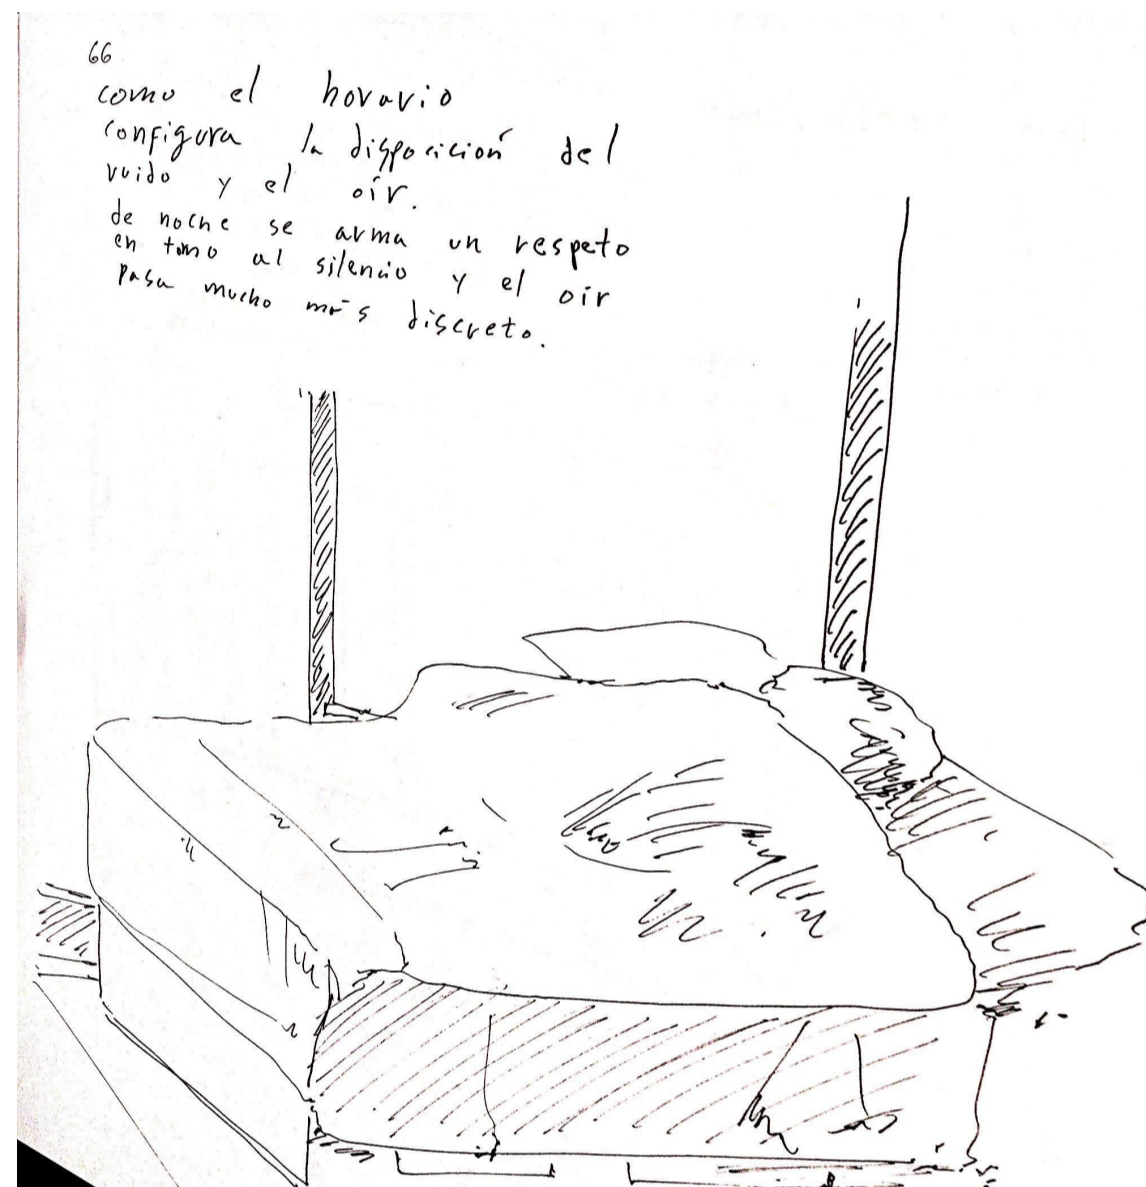 66
como el horario
configura la disposición del
ruido y el oír.
de noche se arma un respeto
en torno al silencio y el oír
pasa mucho más discreto.